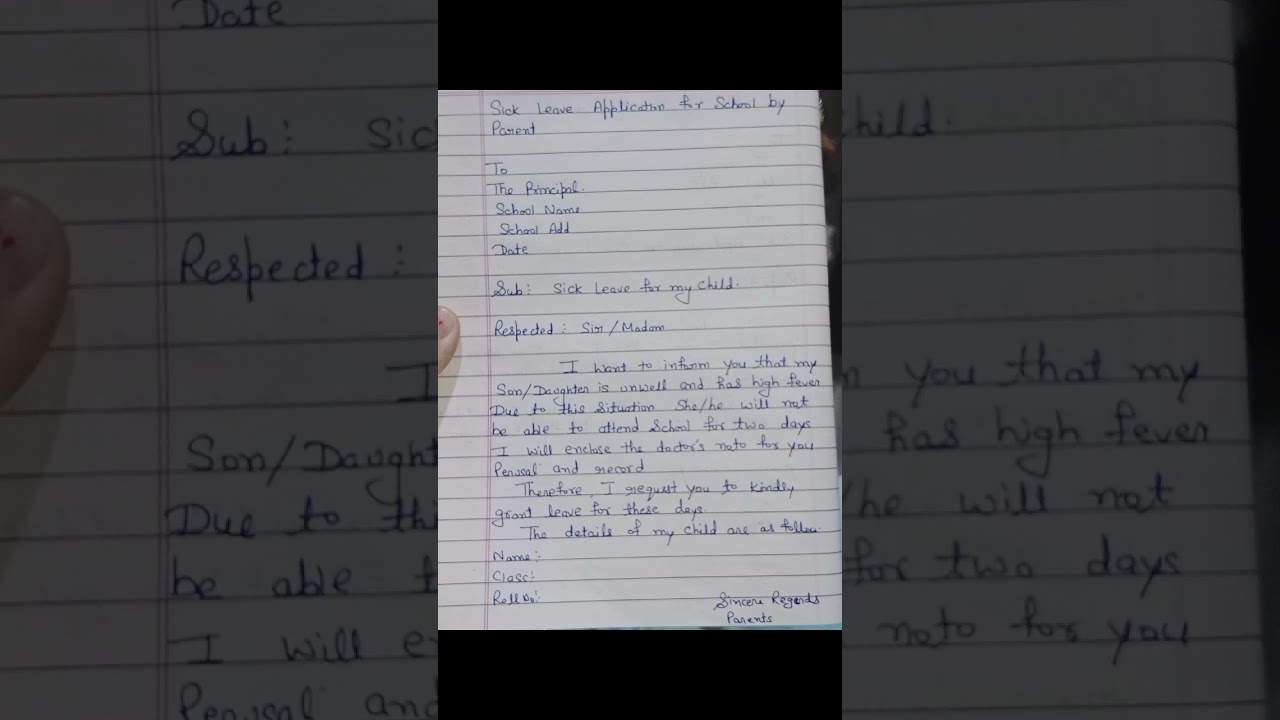 Sick Leave Application for School by
Parent
To
The Principal.
School Name
School Add
Date
Sub: Sick Leave for my child.
Respected: Sir/Madam
I want to inform you that my
Son/Daughter is unwell and has high fever
Due to this Situation She/he will not
be able to attend School for two days
I will enclose the doctor's noto for you
Perusal and record
Therefore, I request you to kindly
grant leave for these days.
The details of my child are as follow.
Name:-
Class:-
Roll No:-
Sincere Regards
Parents